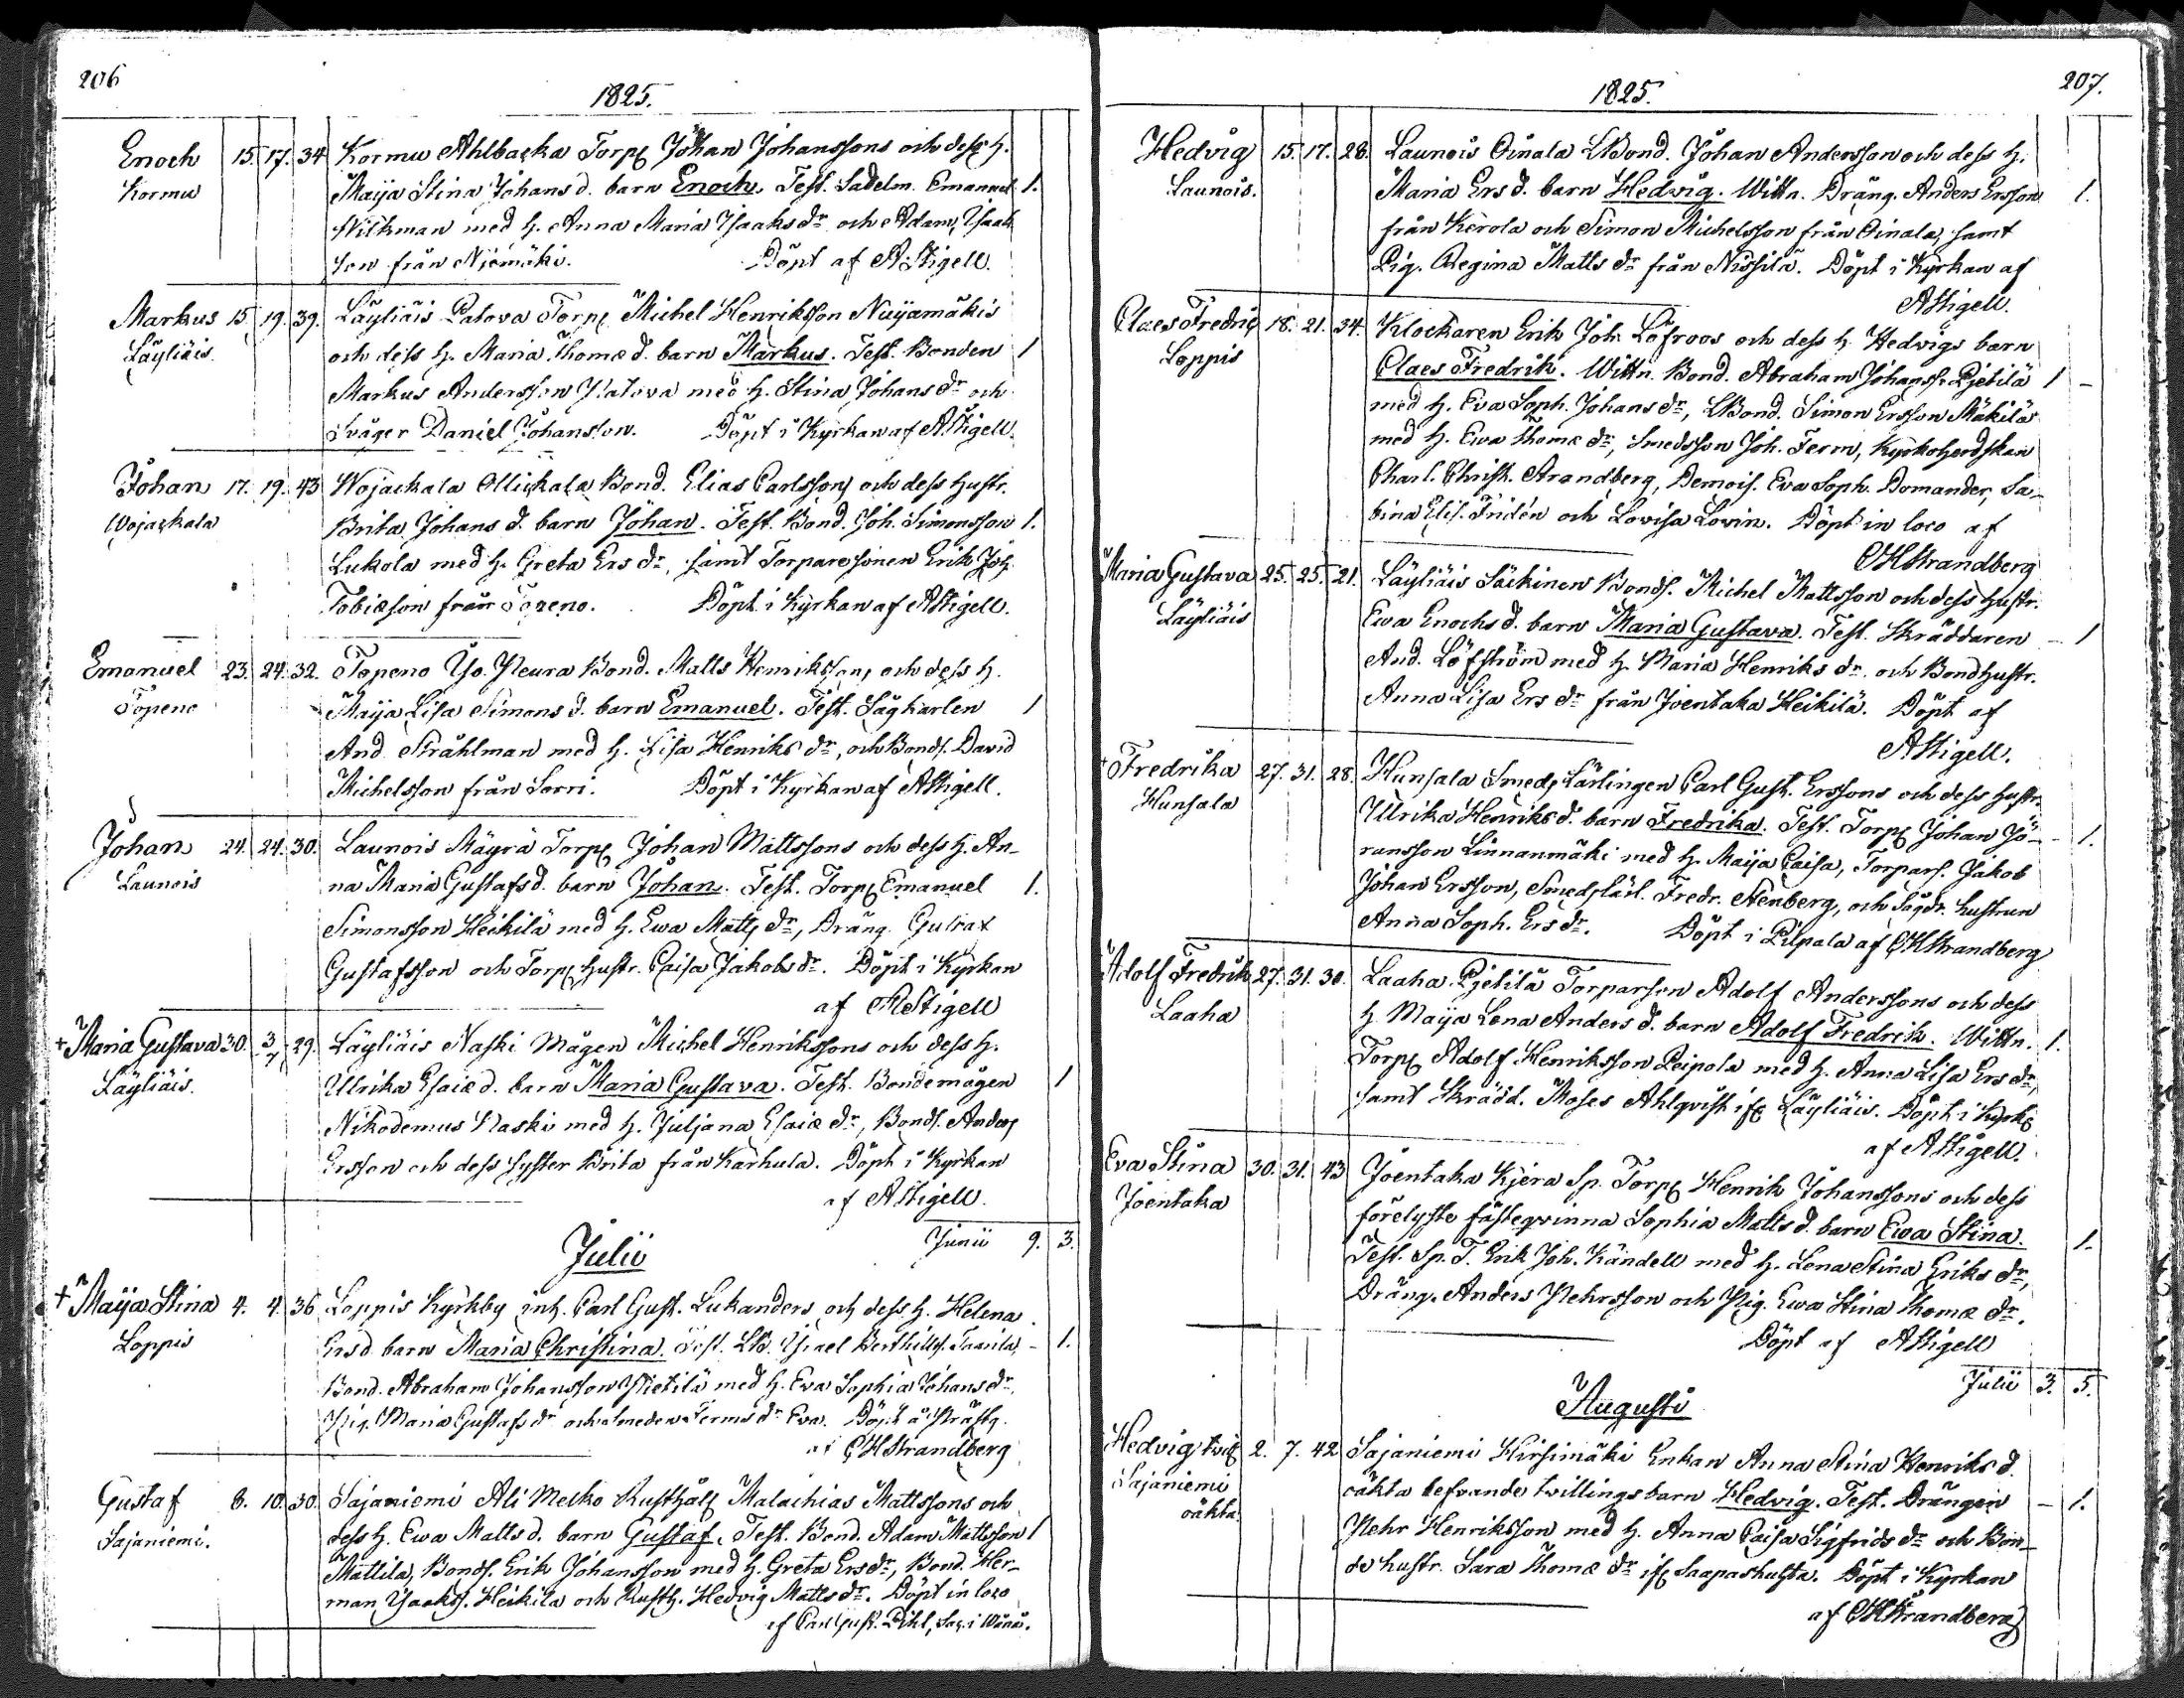 206
1825.
Enoch 15. 17. 34 Kormu Ahlbacka Torp. Johan Johanssons och dess h.
Kormu Maija Stina Johans d. barn Enoch. Test. Sadelm. Emanuel 1.
Wikman med h. Anna Maria Isaaks dr och Adam Isaak
son från Niemäki. Döpt af A Stigell.
Markus 15 19. 39. Läyliäis Patova Torp. Michel Henriksson Nuijamäkis
Läyliäis och dess h. Maria Thomæ d. barn Markus. Test. Bonden 1
Markus Andersson Patova med h. Stina Johans dr och
Svåger Daniel Johansson. Döpt i Kyrkan af A Stigell.
Johan 17. 19. 43 Wojackala Ollickala Bond. Elias Carlssons och dess hustr.
Wojackala Brita Johans d. barn Johan. Test. Bond. Joh. Simonsson 1.
Lukola med h. Greta Ers dr, samt Torparesonen Erik Joh.
Tobiæson från Topeno. Döpt i Kyrkan af A Stigell.
Emanuel 23. 24. 32. Topeno Yso Neura Bond. Matts Henrikssons och dess h.
Topeno Maija Lisa Simons d. barn Emanuel. Test. Sågkarlen 1
And. Stråhlman med h. Lisa Henriks dr, och Bonds. David
Michelsson från Sorri. Döpt i Kyrkan af A Stigell.
Johan 24. 24. 30. Launois Mäyrä Torp. Johan Mattssons och dess h. An-
Launois na Maria Gustafs d. barn Johan. Test. Torp. Emanuel 1.
Simonsson Heikilä med h. Ewa Matts dr, Dräng. Gustaf
Gustafsson och Torp. hustr. Caisa Jakobs dr. Döpt i Kyrkan
af A Stigell
+ Maria Gustava 30. 3/7 29. Läyliäis Naski Mågen Michel Henrikssons och dess h.
Läyliäis. Ulrika Esaiæ d. barn Maria Gustava. Test. Bondemågen 1
Nikodemus Naski med h. Juljana Esaiæ dr, Bonds. Anders
Ersson och dess syster Brita från Karhula. Döpt i Kyrkan
af A Stigell.
Junii 9. 3.
Julii
+ Maija Stina 4. 4. 36 Loppis Kyrkby inh. Carl Gust. Lukanders och dess h. Helena
Loppis Ers d barn Maria Christina. Test. LB. Israel Berthills. Taarila, - 1.
Bond. Abraham Johansson Pietilä med h. Eva Sophia Johans dr,
Pig. Maria Gustafs dr och Smeden Ferms dr Eva. Döpt å Prästg.
af C H Strandberg
Gustaf 8. 10. 30. Sajaniemi Ali Melko Rusthåll. Malachias Mattssons och
Sajaniemi. dess h. Ewa Matts d. barn Gustaf. Test. Bond. Adam Mattsson 1
Mattila, Bonds. Erik Johansson med h. Greta Ers dr, Bond. Her-
man Isaaks. Heikilä och Rusth. Hedvig Matts dr. Döpt in loco
af Carl Gust. Pihl, Sac. i Wånå.
207.
1825.
Hedvig 15. 17. 28. Launois Oinala LBond. Johan Andersson och dess h.
Launois. Maria Ers d. barn Hedvig. Wittn. Dräng. Anders Ersson 1.
från Kerola och Simon Michelsson från Oinala, samt
Pig. Regina Matts dr från Nissilä. Döpt i Kyrkan af
A Stigell.
Claes Fredric 18. 21. 34. Klockaren Erik Joh. Löfroos och dess h. Hedvigs barn
Loppis Claes Fredrik. Wittn. Bond. Abraham Johanss. Pietilä 1 -
med h. Eva Soph. Johans dr, LBond. Simon Ersson Mäkilä
med h. Ewa Thomæ dr, Smedsson Joh. Ferm, Kyrkoherdskan
Charl. Christ. Strandberg, Demois. Eva Soph. Domander, Sa-
bina Elis. Fridén och Lovisa Lovin. Döpt in loco af
C H Strandberg
Maria Gustava 25. 25. 21. Läyliäis Säckinen Bonds. Michel Mattsson och dess hustr.
Läyliäis Ewa Enochs d. barn Maria Gustava. Test. Skräddaren - 1
And. Löfström med h. Maria Henriks dr och Bondhustr.
Anna Lisa Ers dr från Joentaka Heikilä. Döpt af
A Stigell.
+ Fredrika 27. 31. 28. Hunsala Smeds Lärlingen Carl Gust. Erssons och dess hustr.
Hunsala Ulrika Henriks d. barn Fredrika. Test. Torp. Johan Jö- - 1.
ransson Linnanmäki med h. Maija Caisa, Torpars. Jakob
Johan Ersson, Smedslärl. Fredr. Stenberg, och Sågdr. hustrun
Anna Soph. Ers dr. Döpt i Pilpala af C H Strandberg
Adolf Fredrik 27. 31. 30. Laaha Pjetilä Torparson Adolf Anderssons och dess
Laaha h. Maija Lena Anders d. barn Adolf Fredrik. Wittn. 1.
Torp. Adolf Henriksson Peipola med h. Anna Lisa Ers dr,
samt Skrädd. Moses Ahlqvist ifr. Läyliäis. Döpt i Kyrk.
af A Stigell.
Eva Stina 30. 31. 43 Joentaka Kjera Sp. Torp. Henrik Johanssons och dess
Joentaka förelyste fästeqvinna Sophia Matts d. barn Ewa Stina. 1.
Test. Sp. T. Erik Joh. Kändell med h. Lena Stina Eriks dr,
Dräng. Anders Pehrsson och Pig. Ewa Stina Thomæ dr.
Döpt af A Stigell
Julii 3. 5.
Augusti
Hedvig tvil. 2. 7. 42 Sajaniemi Hirsimäki Enkan Anna Stina Henriks d.
Sajaniemi oäkta lefvande tvillingsbarn Hedvig. Test. Drängen - 1.
oäkta. Pehr Henriksson med h. Anna Caisa Sigfrids dr och Bon-
de hustr. Sara Thomæ dr ifr. Saapashuhta. Döpt i Kyrkan
af C H Strandberg